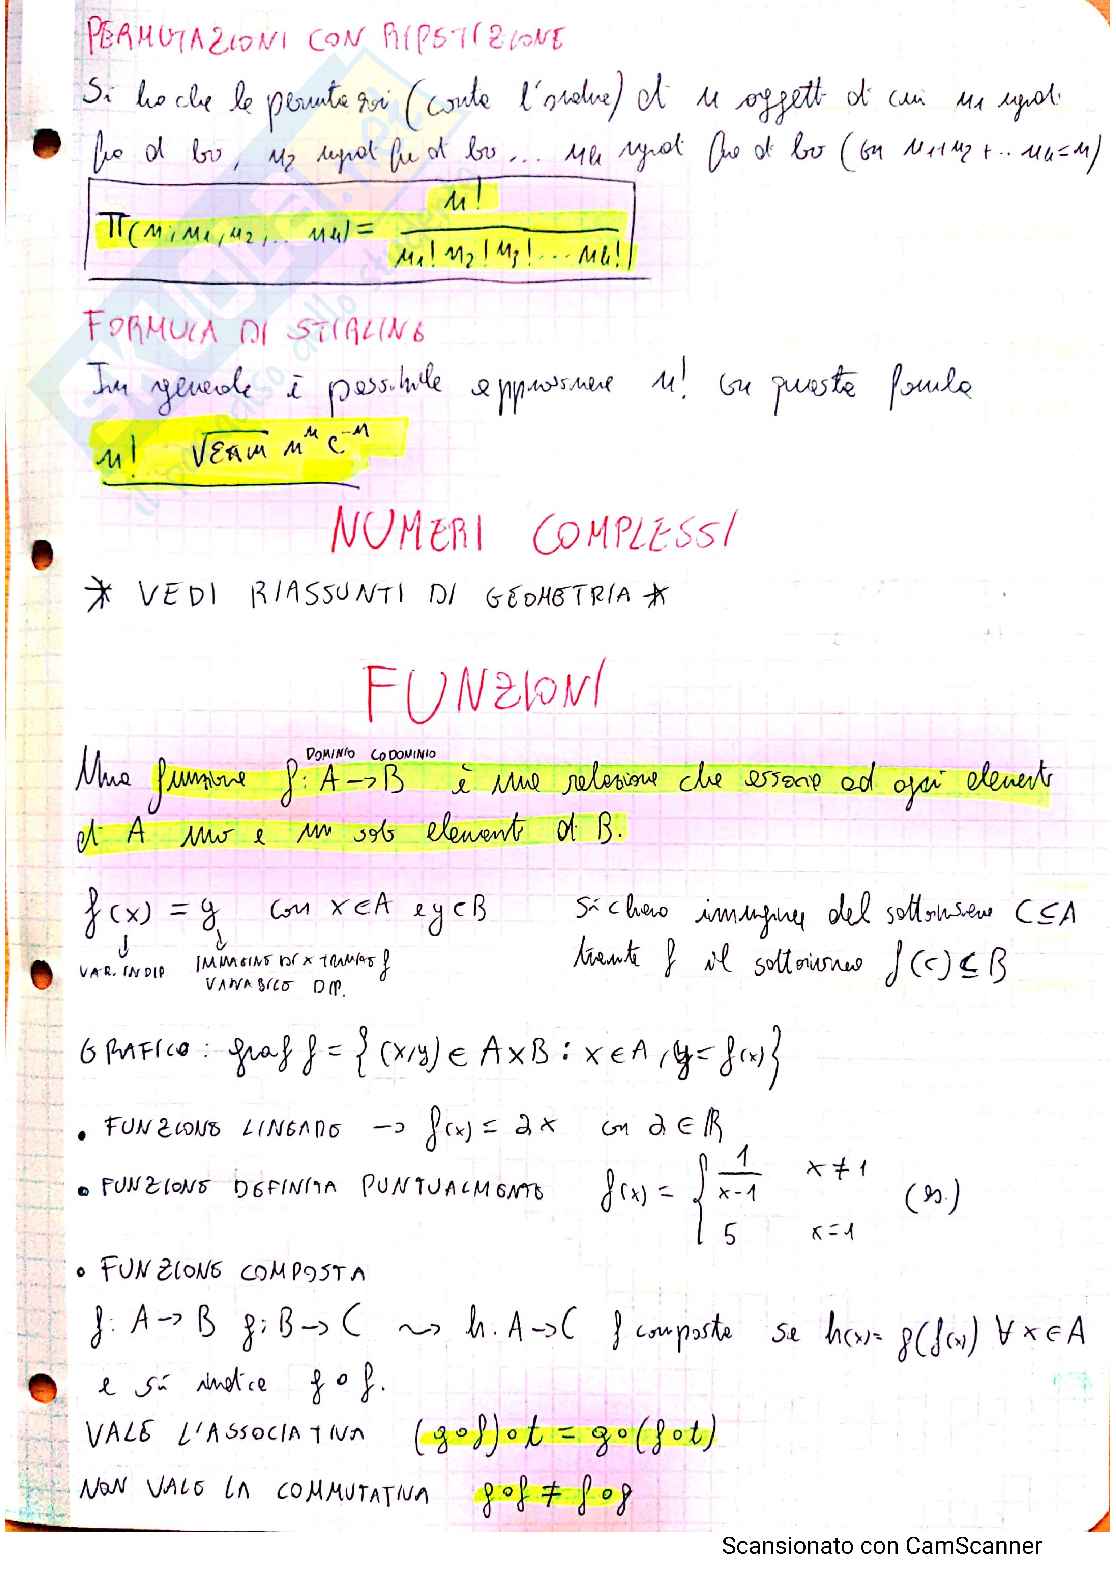 PERMUTAZIONI CON RIPETIZIONE
Si ha che le permutazioni (conta l'ordine) di n oggetti di cui n₁ uguali
fra di loro, n₂ uguali fra di loro... nₖ uguali fra di loro (con n₁+n₂+..nₖ=n)
Π(n,n₁,n₂,.. nₖ) = n! / n₁! n₂! n₃!... nₖ!
FORMULA DI STIRLING
In generale è possibile approssimare n! con questa formula
n! √2πn nⁿ e⁻ⁿ
NUMERI COMPLESSI
* VEDI RIASSUNTI DI GEOMETRIA *
FUNZIONI
DOMINIO CODOMINIO
Una funzione f: A → B è una relazione che associa ad ogni elemento
di A uno e un solo elemento di B.
f(x) = y con x ∈ A e y ∈ B
VAR. INDIP
IMMAGINE DI X TRAMITE f
VARIABILE DIP.
Si chiama immagine del sottoinsieme C⊆A
tramite f il sottoinsieme f(C) ⊆ B
GRAFICO: graf f = { (x,y) ∈ A×B : x ∈ A, y = f(x)}
• FUNZIONE LINEARE → f(x) = ax con a ∈ ℝ
• FUNZIONE DEFINITA PUNTUALMENTE f(x) = { 1/(x-1) x ≠ 1 (es.)
5 x=1
• FUNZIONE COMPOSTA
f: A → B g: B → C ⤳ h: A → C f composta se h(x) = g(f(x)) ∀ x ∈ A
e si indica g ∘ f.
VALE L'ASSOCIATIVA (g∘f)∘t = g∘(f∘t)
NON VALE LA COMMUTATIVA g∘f ≠ f∘g
Scansionato con CamScanner